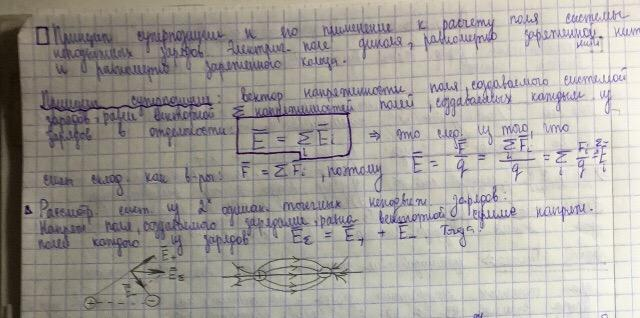 Принцип суперпозиции и его применение к расчету поля системы
неподвижных зарядов. Электрич. поле диполя, равномерно заряженной нити
и равномерно заряженного кольца.
Принцип суперпозиции: вектор напряженности поля, создаваемого системой
зарядов, равен векторной Σ напряженностей полей, создаваемых каждым из
зарядов в отдельности: E̅ = Σ E̅i ⇒ это след. из того, что
силы склад. как в-ры: F̅ = Σ F̅i, поэтому E̅ = F̅/q = Σ F̅i/q = Σ F̅i/q = Σ E̅i
Рассмотр. сист. из 2х одинак. точечных неподвиж. зарядов:
Напряж. поля, создаваемого зарядами, равна векторной сумме напряж.
полей каждого из зарядов E̅Σ = E̅+ + E̅-. Тогда:
E̅+
E̅Σ
E̅-
+ -
+ -